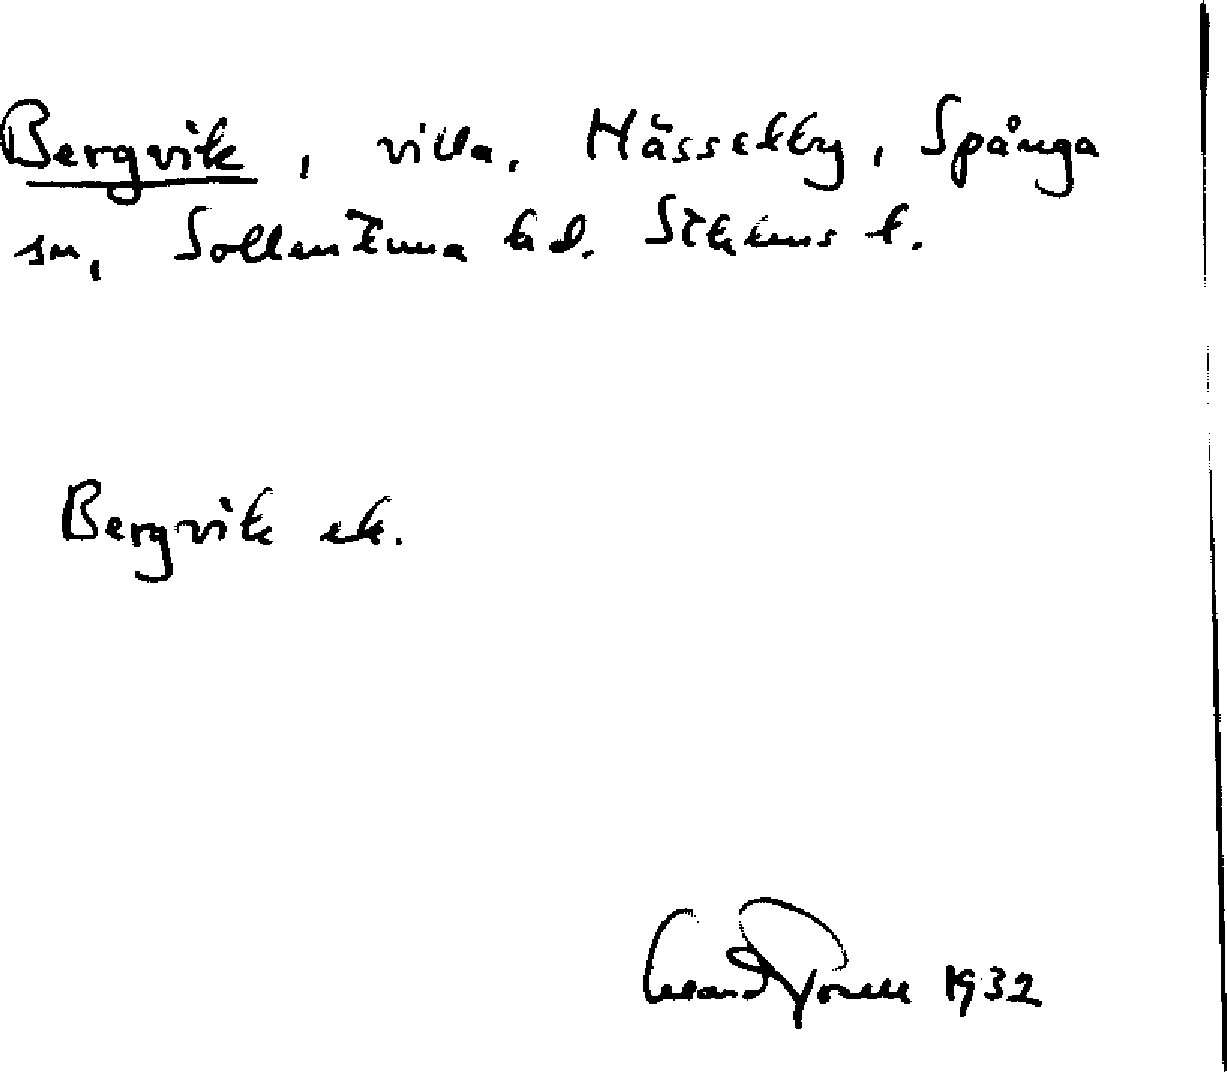 Bergvik, villa, Hässelby, Spånga
sn, Sollentuna hd. Sthlms l.
Bergvik ek.
1932